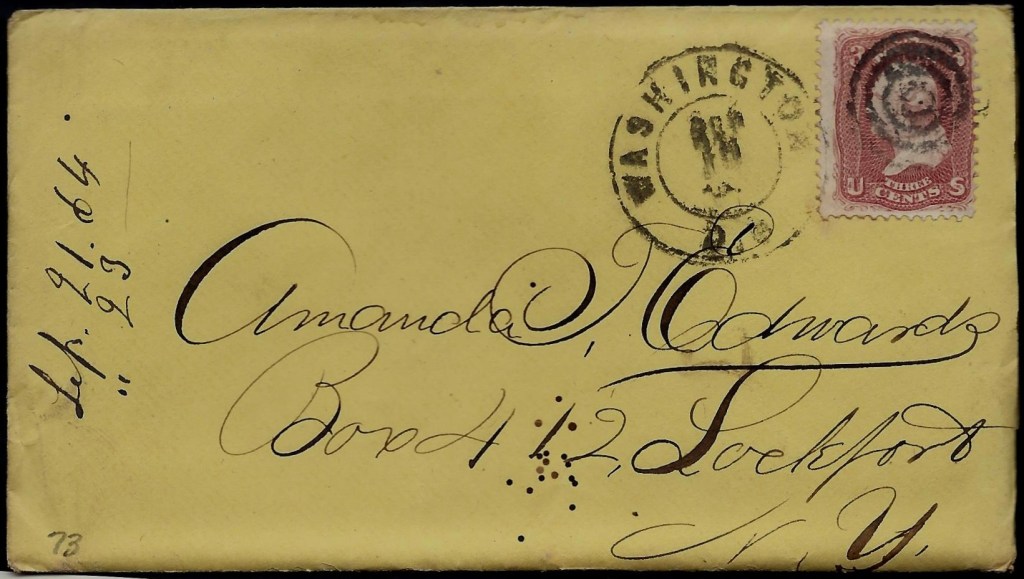 WASHINGTON
D.C.
U THREE CENTS S
Sep. 21. 64.
" 23
Amanda T. Edwards
Box 412, Lockport
N. Y.
73